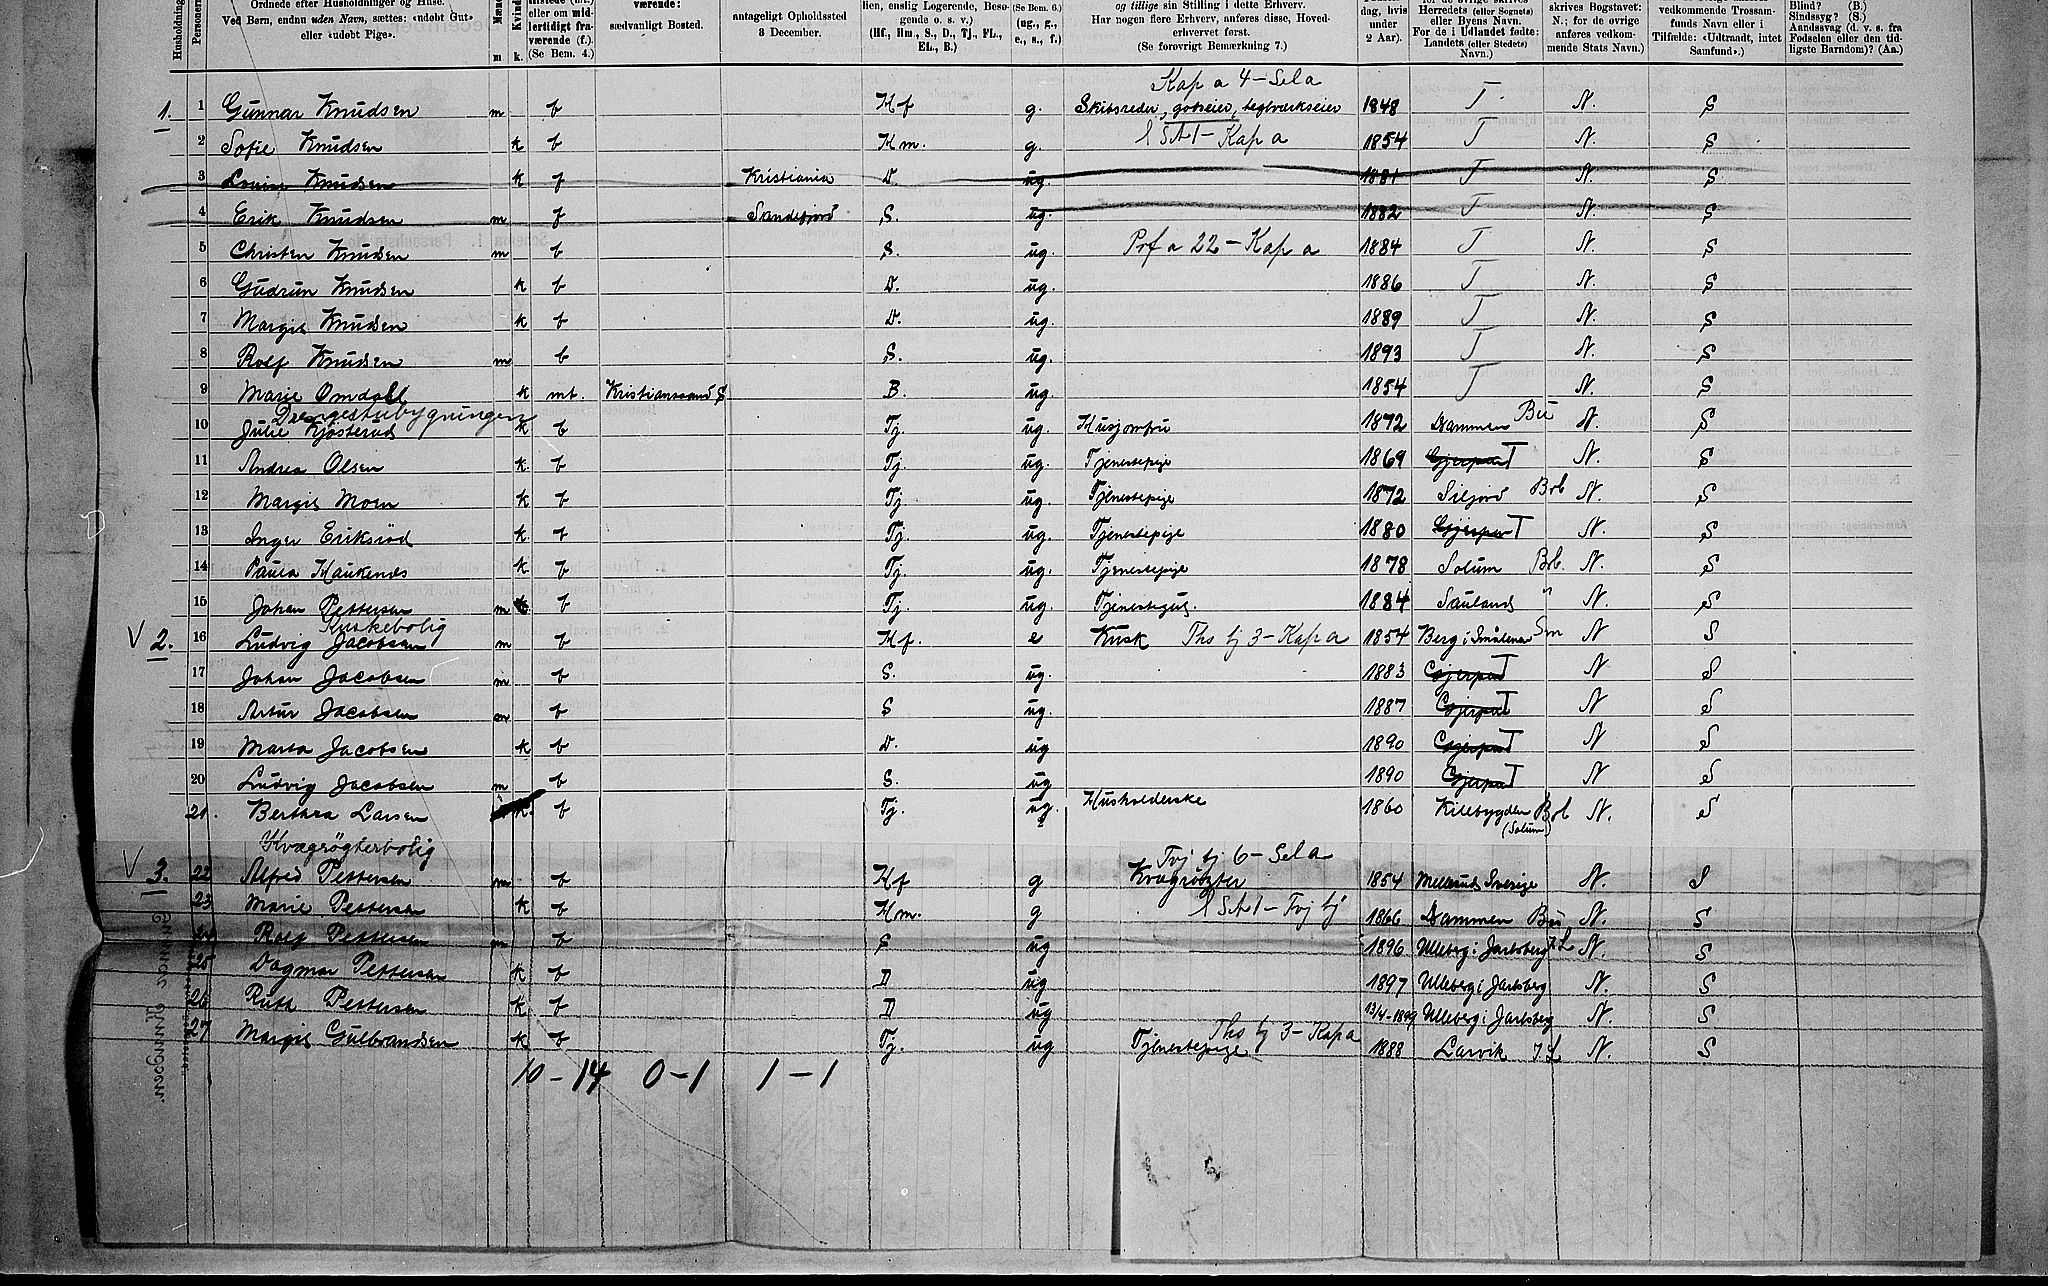 Ordnede efter Husholdninger og Huse.
Ved Børn, endnu uden Navn, sættes: «udøbt Gut»
eller «udøbt Pige».
Husholdning
Personern
Mænd
Kvind
m
k.
eller om mid-
lertidigt fra-
værende (f.).
(Se Bem. 4.)
værende:
sædvanligt Bosted.
antageligt Opholdssted
3 December.
lien, enslig Logerende, Besø-
gende o. s. v.)
(Hf., Hm., S., D., Tj., FL.,
EL., B.)
(Se Bem. 6.)
(ug., g.,
e., s., f.)
og tillige sin Stilling i dette Erhverv.
Har nogen flere Erhverv, anføres disse, Hoved-
erhvervet først.
(Se forøvrigt Bemærkning 7.)
dag, hvis
under
2 Aar).
Herredets (eller Sognets)
eller Byens Navn.
For de i Udlandet fødte:
Landets (eller Stedets)
Navn.)
skrives Bogstavet:
N.; for de øvrige
anføres vedkom-
mende Stats Navn.)
vedkommende Trossam-
funds Navn eller i
Tilfælde: «Udtraadt, intet
Samfund».)
Blind? (B.)
Sindssyg? (S.)
Aandssvag (d. v. s. fra
Fødselen eller den tid-
ligste Barndom)? (Aa.)
Kap a 4 - Sela
1. 1 Gunnar Knudsen m b Hf g. Skibsreder, godseier, teglværkseier 1848 T N. S
2 Sofie Knudsen k b Hm. g. l SA1 - Kap a 1854 T N. S
3 Louise Knudsen k f Kristiania D. ug. 1881 T N. S
4 Erik Knudsen m f Sandefjord S. ug. 1882 T N. S
5 Christen Knudsen m b S. ug. Prf a 22 - Kap a 1884 T N. S
6 Gudrun Knudsen k b D. ug. 1886 T N. S
7 Margit Knudsen k b D. ug. 1889 T N. S
8 Rolf Knudsen m b S. ug. 1893 T N. S
9 Marie Omdal k mt. Kristianssand S B. ug. 1854 T N. S
Drengestubygningen
10 Julie Kjøsterud k b Tj ug. Husjomfru 1872 Drammen Bu N. S
11 Andrea Olsen k b Tj. ug. Tjenestepige 1869 Gjerpen T N. S
12 Margit Moen k b Tj ug. Tjenestepige 1872 Siljord Brb N. S
13 Inger Eriksrød k b Tj. ug. Tjenestepige 1880 Gjerpen T N. S
14 Paula Haukenes k b Tj. ug. Tjenestepige 1878 Solum Brb. N. S
15 Johan Pettersen m b Tj. ug. Tjenestegut. 1884 Sauland " N. S
Kuskebolig
V 2. 16 Ludvig Jacobsen m b Hf. e Kusk Ths tj 3 - Kap a 1854 Berg i Smålenene Sm N S
17 Johan Jacobsen m b S. ug. 1883 Gjerpen T N S
18 Artur Jacobsen m b S ug. 1887 Gjerpen T N S
19 Marta Jacobsen k b D. ug 1890 Gjerpen T N S
20 Ludvig Jacobsen m b S. ug 1890 Gjerpen T N S
21. Berthea Larsen k b Tj. ug. Husholderske 1860 Kilebygden Brb N. S
(Solum)
Kvægrøgterbolig
Tvj tj 6 - Sela
V 3. 22 Alfred Pettersen m b Hf g Kvægrøgter 1854 Mellerud Sverige N. S
23 Marie Pettersen k b Hm. g l SA1 - Tvj tj 1866 Drammen Bu N. S
24 Rolf Pettersen m b S ug 1896 Ulleberg i Jarlsberg JL N. S
25 Dagmar Pettersen k b D ug 1897 Ulleberg i Jarlsberg N. S
26 Ruth Pettersen k b D ug 13/4-1899 Ulleberg i Jarlsberg N. S
27 Margit Gulbrandsen k b Tj. ug Tjenestepige Ths tj 3 - Kap a 1888 Larvik JL N. S
10 - 14 0 - 1 1 - 1